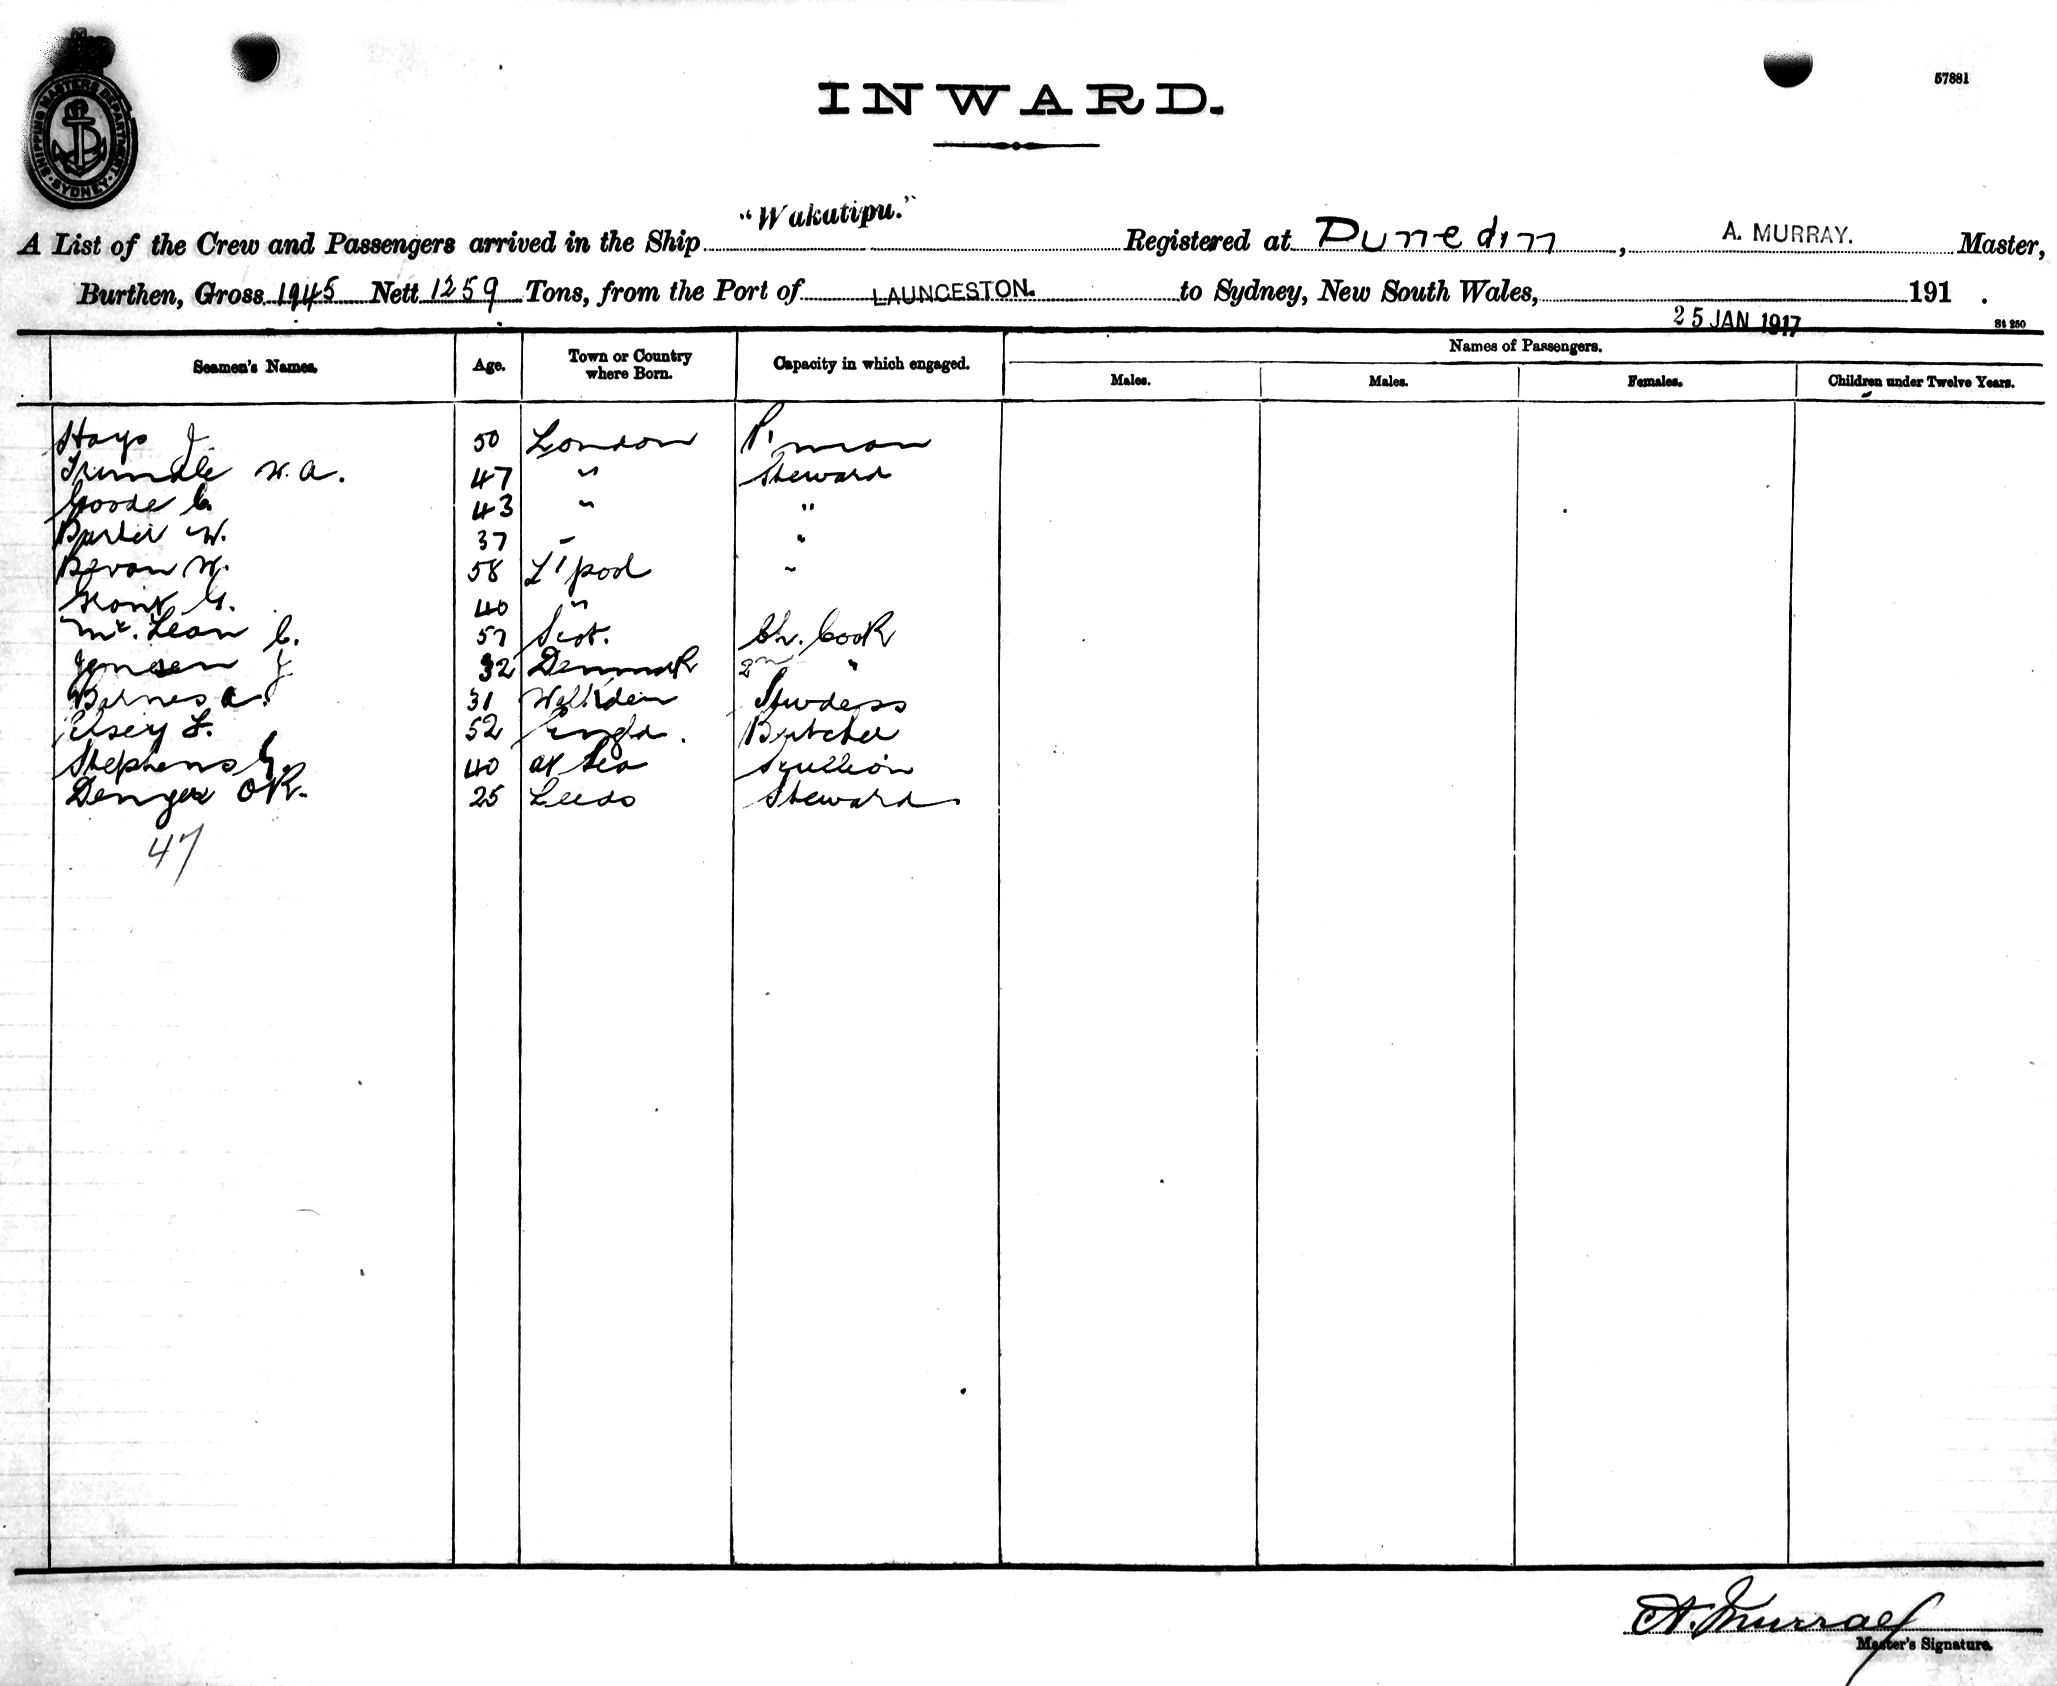 SHIPPING MASTERS DEPARTMENT
SYDNEY
57881
INWARD.
A List of the Crew and Passengers arrived in the Ship "Wakatipu." Registered at Dunedin, A. MURRAY. Master,
Burthen, Gross 1945 Nett 1259 Tons, from the Port of LAUNCESTON. to Sydney, New South Wales, 191 .
25 JAN 1917
St 250
Seamen's Names. Age. Town or Country where Born. Capacity in which engaged. Names of Passengers.
Males. Males. Females. Children under Twelve Years.
Hays J. 50 London P'man
Trumble W. A. 47 " Steward
Goode C. 43 " "
Barter W. 37 " "
Bevan W. 58 L'pool "
Grant G. 40 "
Mc. Lean C. 57 Scot. Ch. Cook
Jensen J 32 Denmark 2nd "
Barnes A. 31 Stwdess
Elsey F. 52 Engld. Butcher
Stephens G. 40 at Sea Scullion
O R. 25 Leeds Steward
47
A. Murray
Master's Signature.